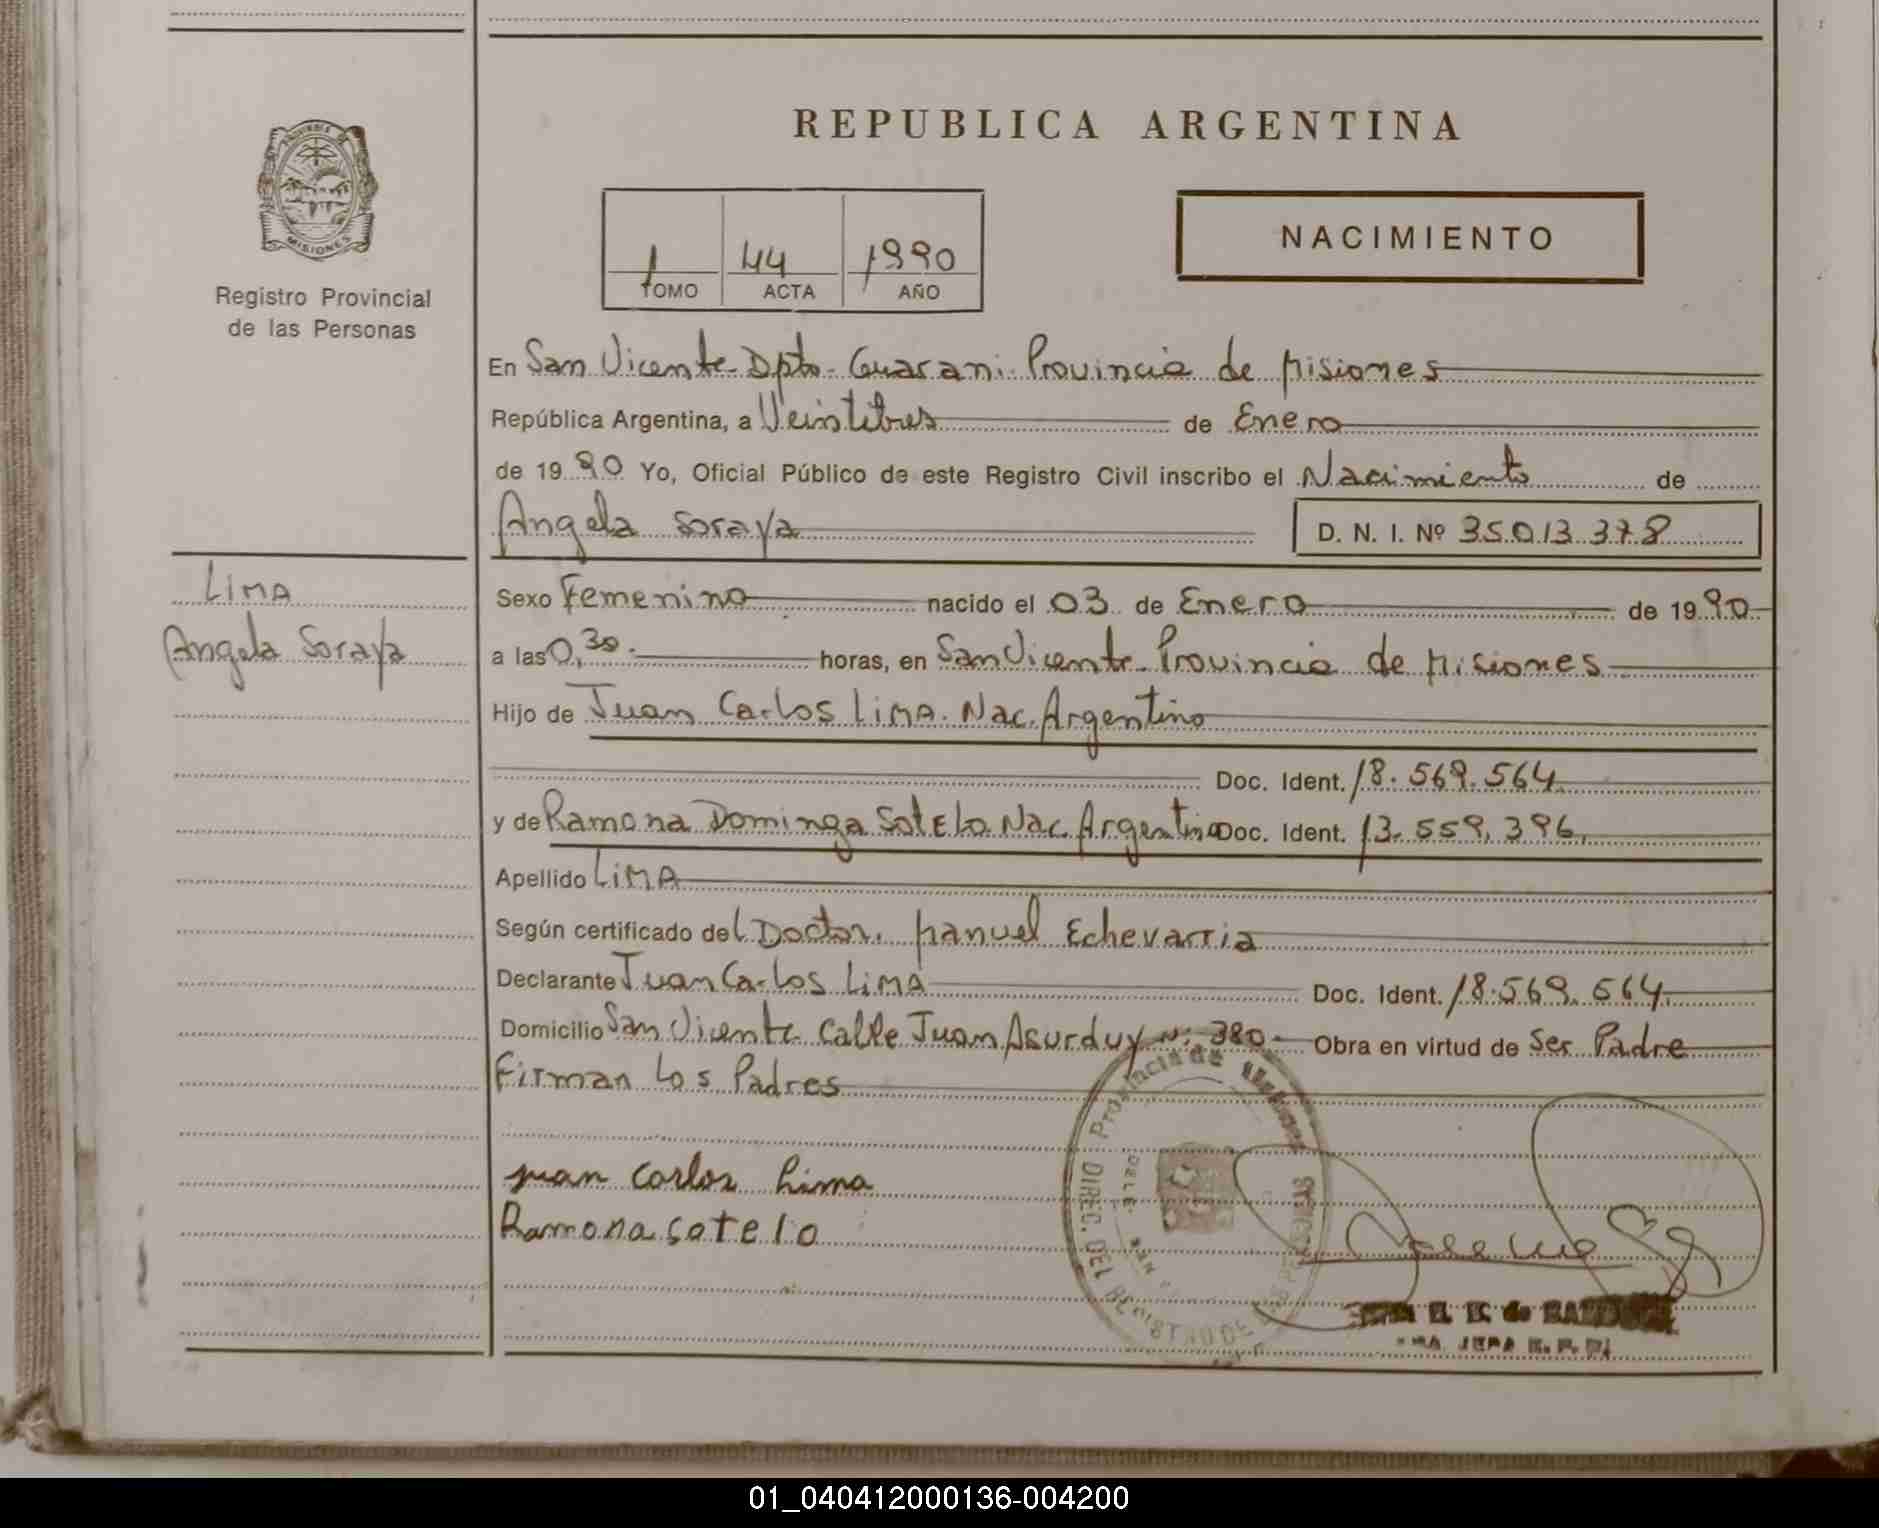 REPUBLICA ARGENTINA
PROVINCIA DE
MISIONES
Registro Provincial
de las Personas
1 44 1990
TOMO ACTA AÑO
NACIMIENTO
En San Vicente Dpto. Guarani. Provincia de Misiones
República Argentina, a Veintitres de Enero
de 19 90 Yo, Oficial Público de este Registro Civil inscribo el Nacimiento de
Angela Soraya D. N. I. Nº 35.013.378
Lima
Angela Soraya
Sexo Femenino nacido el 03 de Enero de 19 90
a las 0,30. horas, en San Vicente Provincia de Misiones
Hijo de Juan Carlos Lima. Nac. Argentino
Doc. Ident. 18.569.564
y de Ramona Dominga Sotelo Nac. Argentina Doc. Ident. 13.559.396.
Apellido Lima
Según certificado del Doctor. Manuel Echevarria
Declarante Juan Carlos Lima Doc. Ident. 18.569.564.
Domicilio San Vicente Calle Juan Asurduy Nº 380 Obra en virtud de Ser Padre
Firman Los Padres
Juan Carlos Lima
Ramona Sotelo
Provincia de Misiones
DIREC. DEL REGISTRO DE
E. de
JEFA
01_040412000136-004200